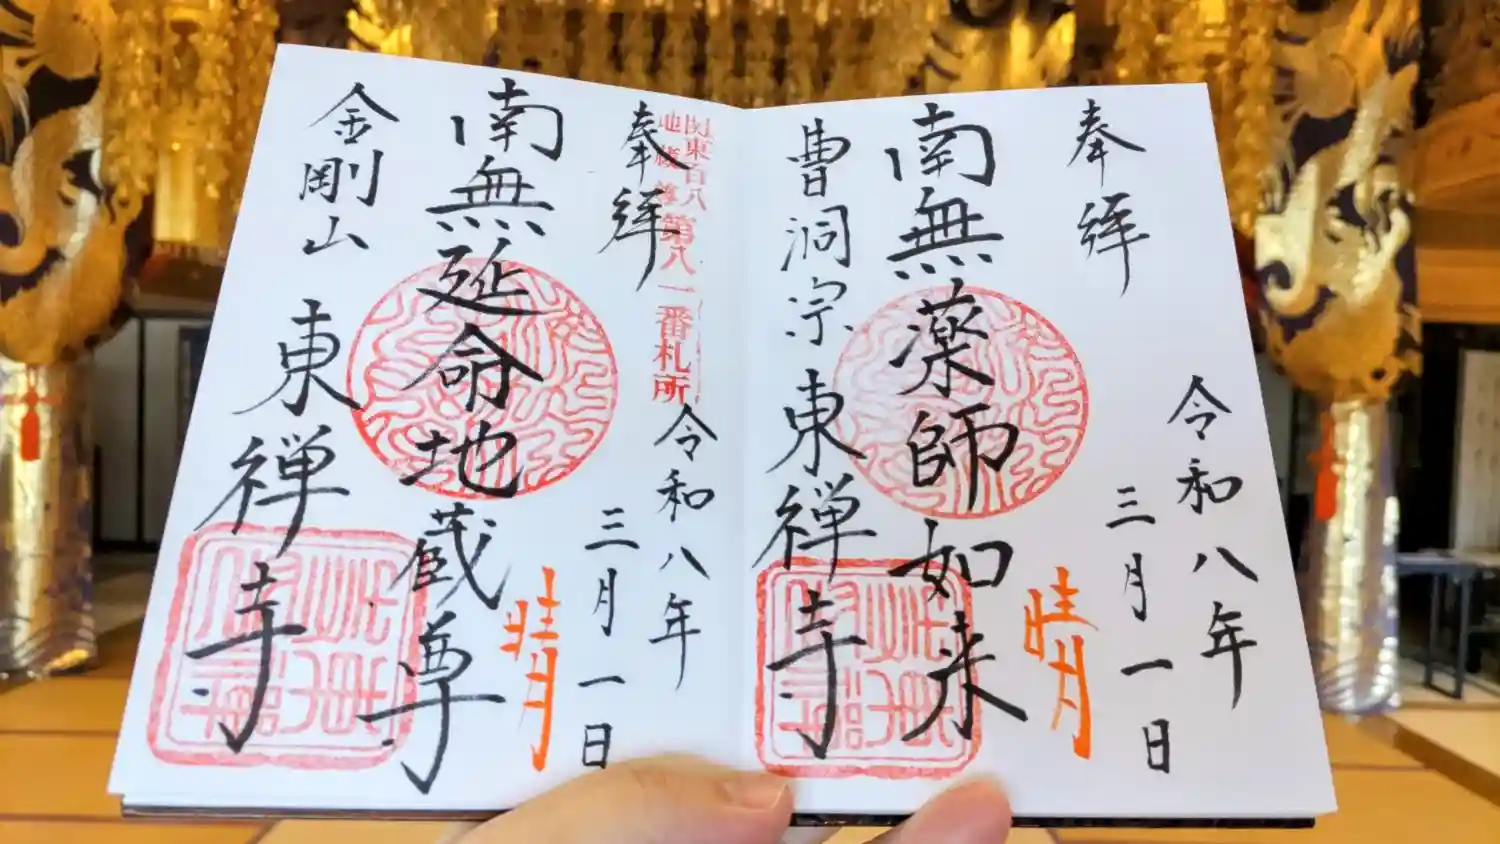 奉拝
令和八年
三月一日
晴
南無薬師如来
曹洞宗
東禅寺
関東百八
地蔵尊
第八一番札所
奉拝
令和八年
三月一日
晴
南無延命地蔵尊
金剛山
東禅寺